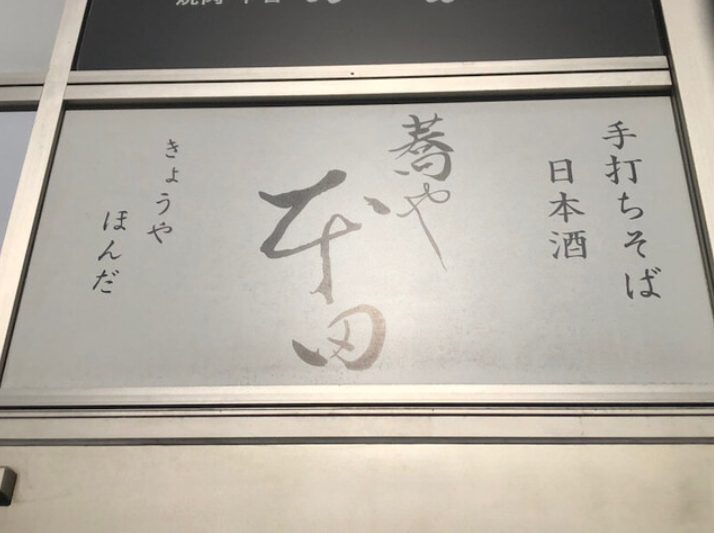 手打ちそば
日本酒
蕎や
本田
きょうや
ほんだ